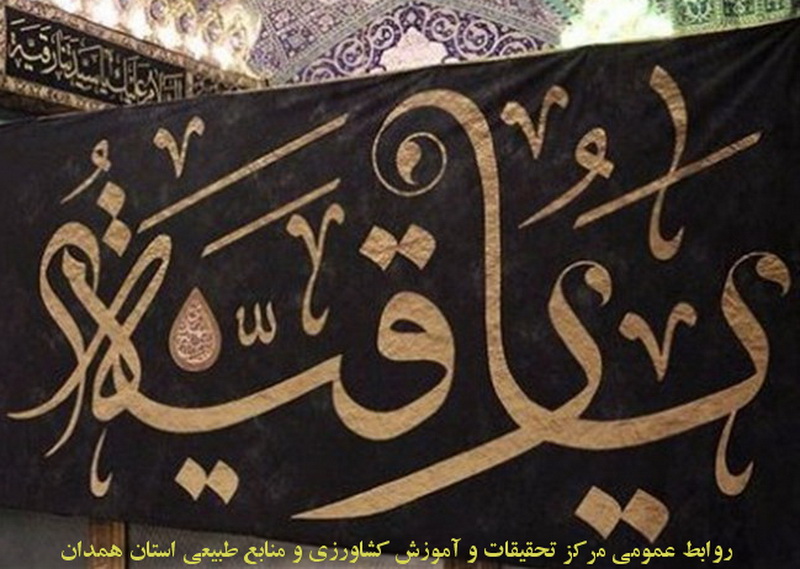 السلام علیک یا سیدتنا رقیة
یا رقیّة
روابط عمومی مرکز تحقیقات و آموزش کشاورزی و منابع طبیعی استان همدان